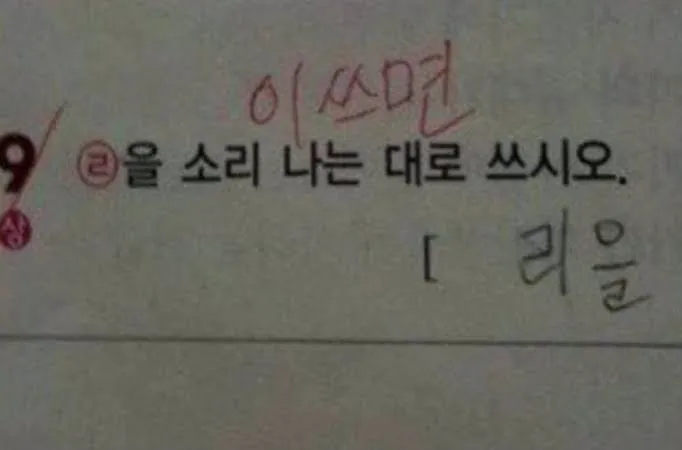 이쓰면
9 ㉣을 소리 나는 대로 쓰시오.
상
[ 리을